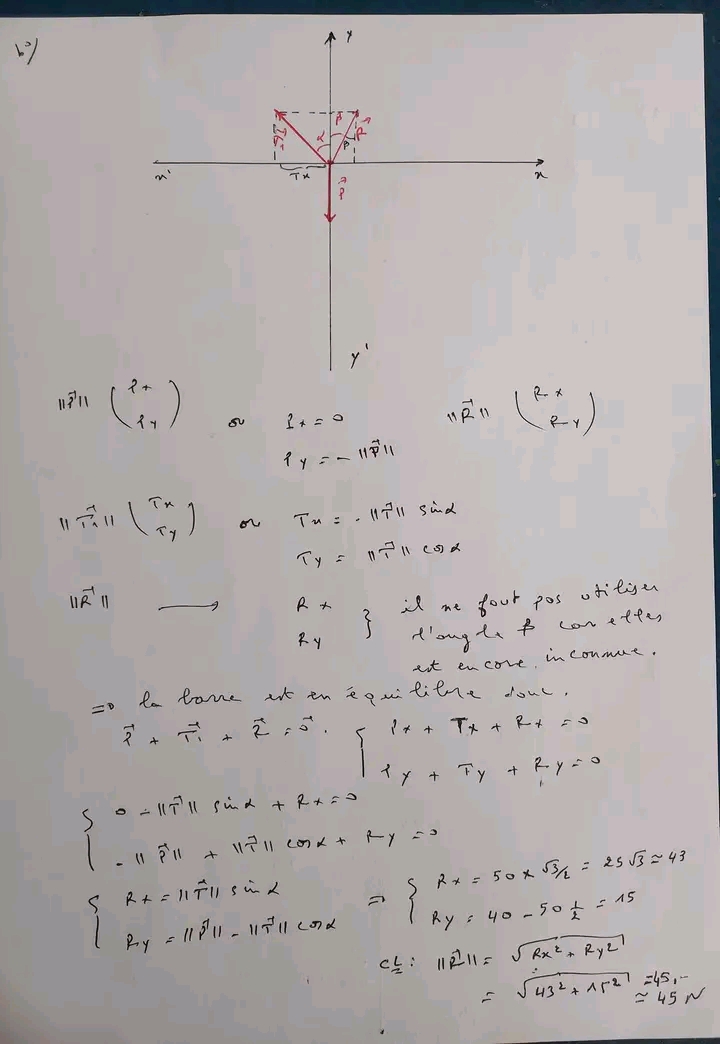 b°/
y
T₁→
α
β
β
R→
x'
Tx
P→
x
y'
||P→|| (Px Py) or Px = 0 ||R→|| (Rx Ry)
Py = - ||P→||
||T₁→|| (Tx Ty) or Tx = - ||T→|| sinα
Ty = ||T→|| cosα
||R→|| ⟶ Rx Ry } il ne faut pas utiliser
l'angle β car elles
est encore inconnue.
=> la barre est en équilibre donc.
P→ + T₁→ + R→ = 0→. { Px + Tx + Rx = 0
Py + Ty + Ry = 0
{ 0 - ||T→|| sinα + Rx = 0
- ||P→|| + ||T→|| cosα + Ry = 0
{ Rx = ||T→|| sinα => { Rx = 50 x √3/2 = 25√3 ≃ 43
Ry = ||P→|| - ||T→|| cosα Ry = 40 - 50 1/2 = 15
CL : ||R→|| = √(Rx² + Ry²)
= √(43² + 15²) = 45,-
≃ 45 N